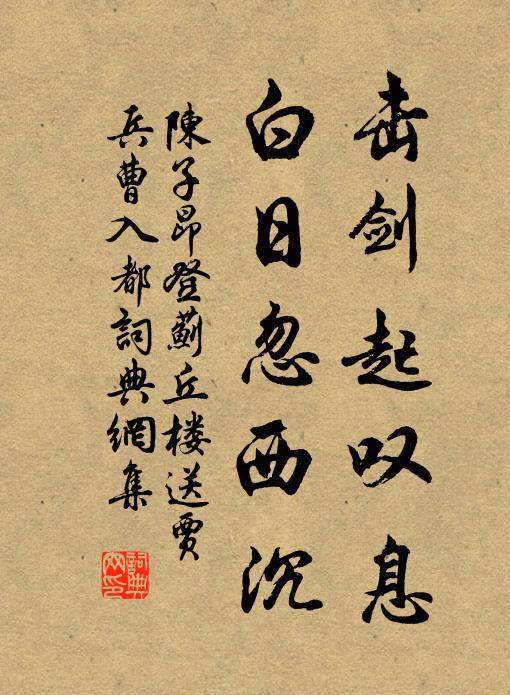 击剑起叹息
白日忽西沉
陳子昂登薊丘楼送賈
兵曹入都詞典網集
詞典
网印